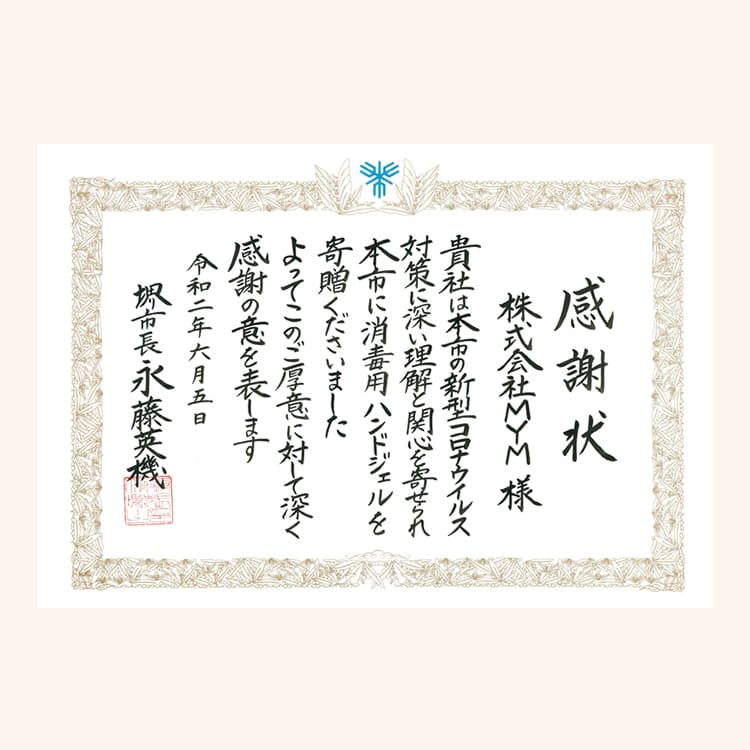 感謝状
株式会社MYM 様
貴社は本市の新型コロナウイルス
対策に深い理解と関心を寄せられ
本市に消毒用ハンドジェルを
寄贈くださいました
よってこのご厚意に対して深く
感謝の意を表します
令和二年六月五日
堺市長 永藤英機